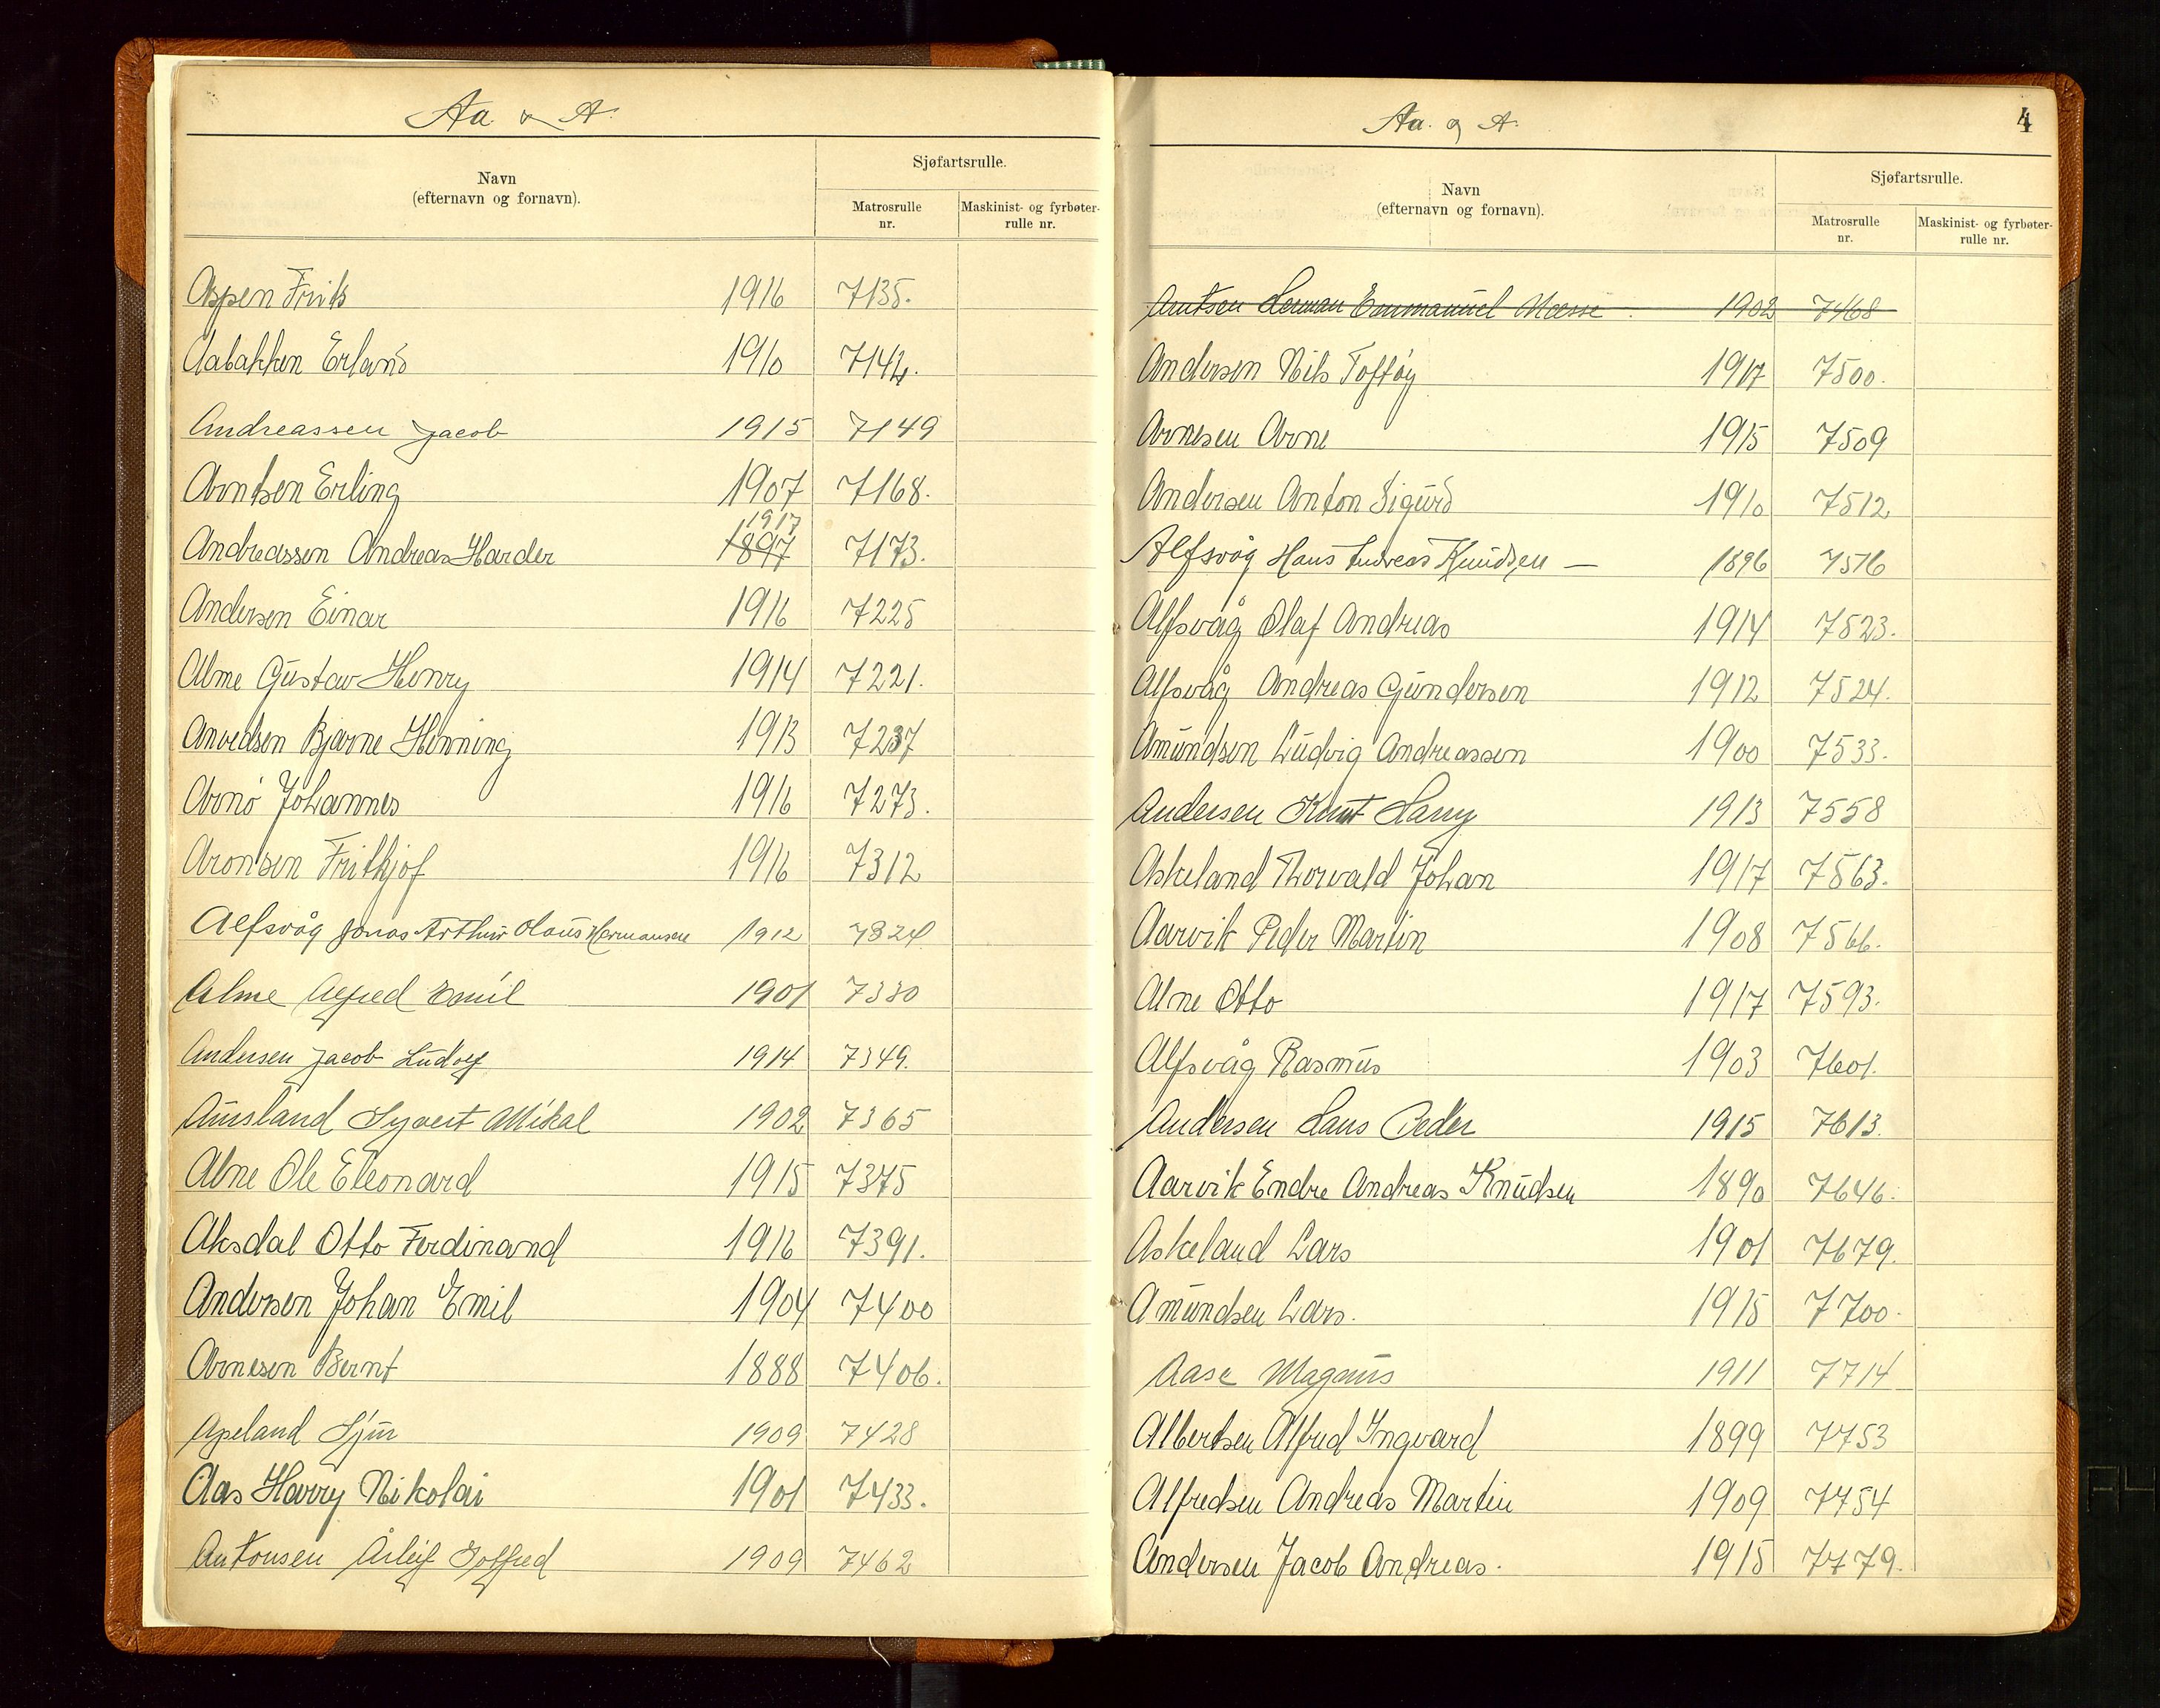 Aa & A.
Navn
(efternavn og fornavn).
Sjøfartsrulle.
Matrosrulle
nr.
Maskinist- og fyrbøter-
rulle nr.
Aspen Frits 1916 7135.
Aabakken Erland 1910 7142.
Andreassen Jacob 1915 7149
Arntsen Erling 1907 7168.
1917
Andreassen Andreas Harder 1897 7173.
Andersen Einar 1916 7225
Alme Gustav Henry 1914 7221.
Anvedsen Bjarne Henning 1913 7237
Arnø Johannes 1916 7273.
Aronsen Frithjof 1916 7312
Alfsvåg Jonas Arthur Olaus Hermansen 1912 7324
Alme Alfred Emil 1901 7330
Andersen Jacob Ludolf 1914 7349.
Aunsland Syvert Mikal 1902 7365
Alne Ole Eleonard 1915 7375
Aksdal Otto Ferdinand 1916 7391.
Andersen Johan Emil 1904 7400
Arnesen Bernt 1888 7406.
Apeland Sjur 1909 7428
Aas Harry Nikolai 1901 7433.
Antonsen Årleif Golfred 1909 7462
Aa. og A.
4
Navn
(efternavn og fornavn).
Sjøfartsrulle.
Matrosrulle
nr.
Maskinist- og fyrbøter-
rulle nr.
Arntsen Herman Emmanuel Mosse 1902 7468
Andersen Nils Toftøy 1917 7500.
Arnesen Arne 1915 7509
Andersen Anton Sigurd 1910 7512
Alfsvåg Hans Andreas Knudsen — 1896 7516
Alfsvåg Olaf Andreas 1914 7523.
Alfsvåg Andreas Gundersen 1912 7524.
Amundsen Ludvig Andreassen 1900 7533.
Andersen Knut Harry 1913 7558
Askeland Thorvald Johan 1917 7563.
Aarvik Peder Martin 1908 7566.
Alne Otto 1917 7593.
Alfsvåg Rasmus 1903 7601.
Andersen Hans Peder 1915 7613.
Aarvik Endre Andreas Knudsen 1890 7646.
Askeland Lars 1901 7679.
Amundsen Lars. 1915 7700.
Aase Magnus 1911 7714
Albertsen Alfred Ingvard 1899 7753
Alfredsen Andreas Martin 1909 7754
Andersen Jacob Andreas. 1915 7779.